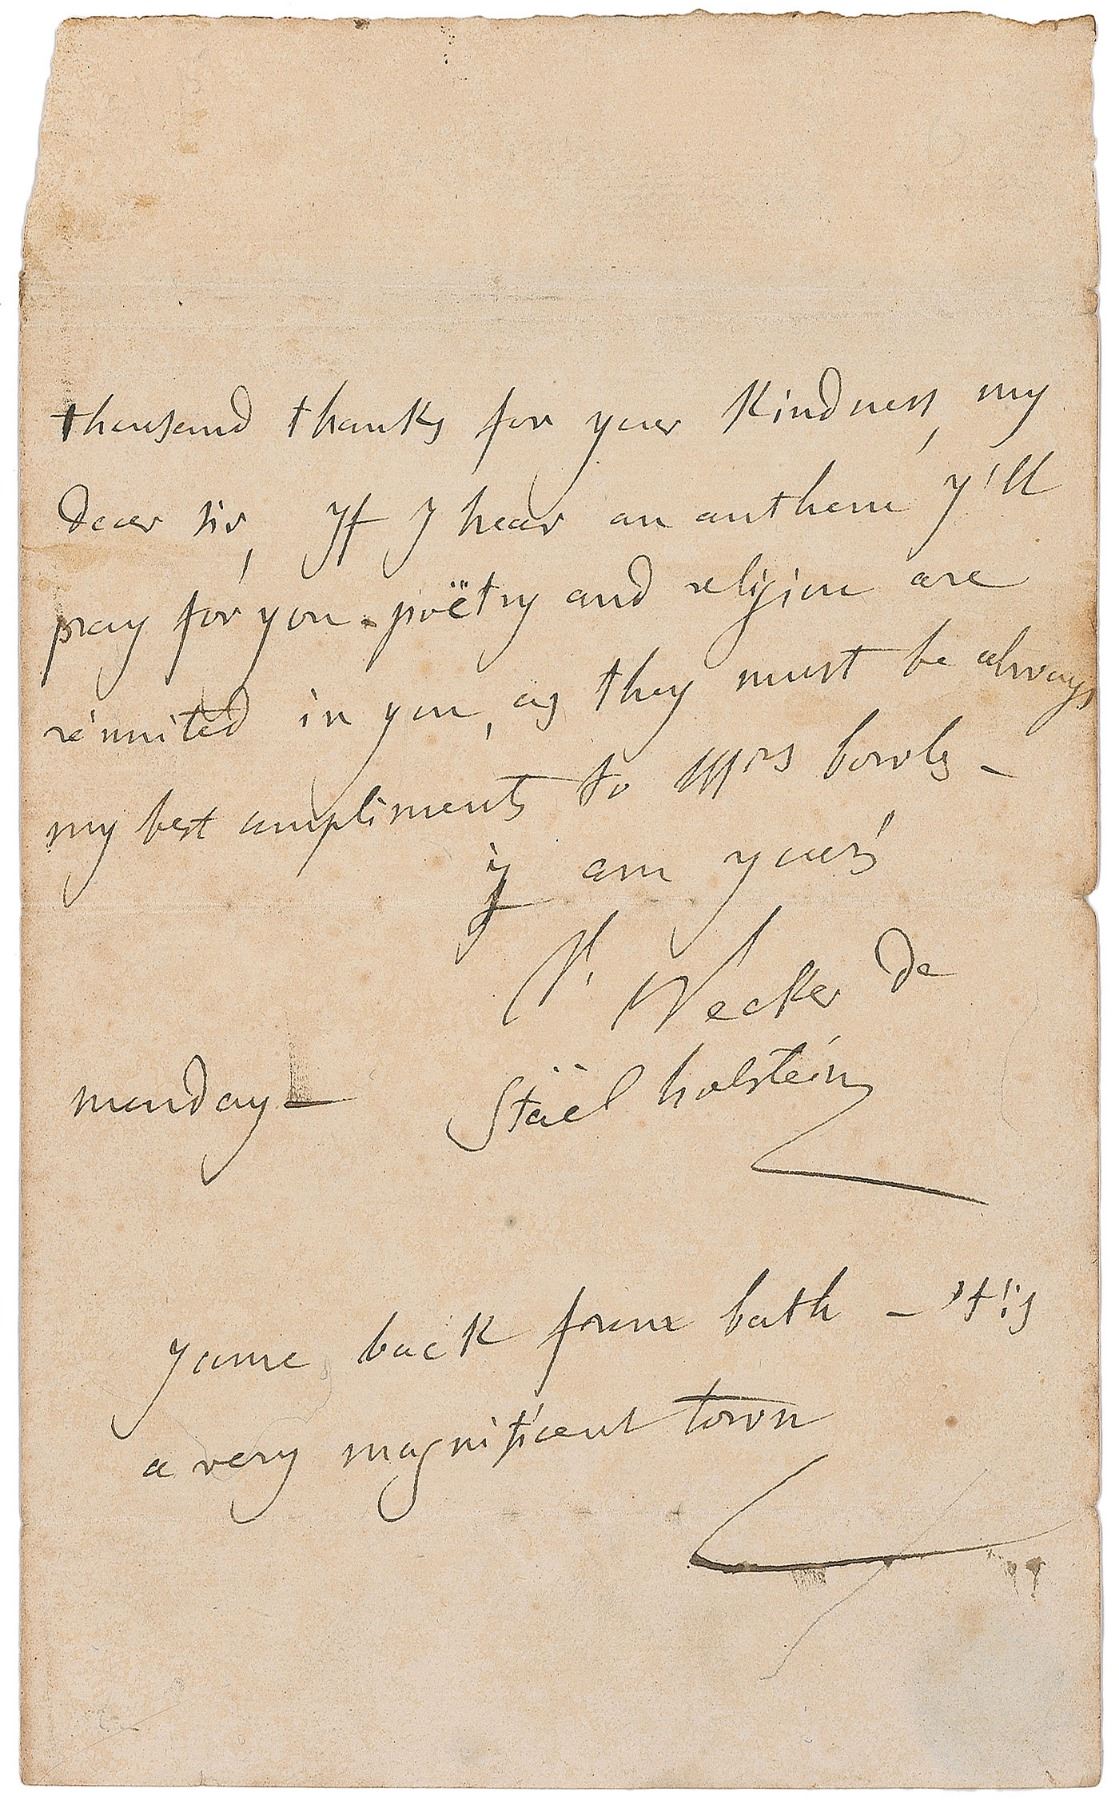 thousand thanks for your Kindness, my
dear sir, If J hear an anthem y'll
pray for you - poëtry and religion are
réunited in you, as they must be always
my best compliments to Mrs bowls -
y am yours
N. Necker de
monday - Stäel holstein
y came back from bath - 't is
a very magnificent town